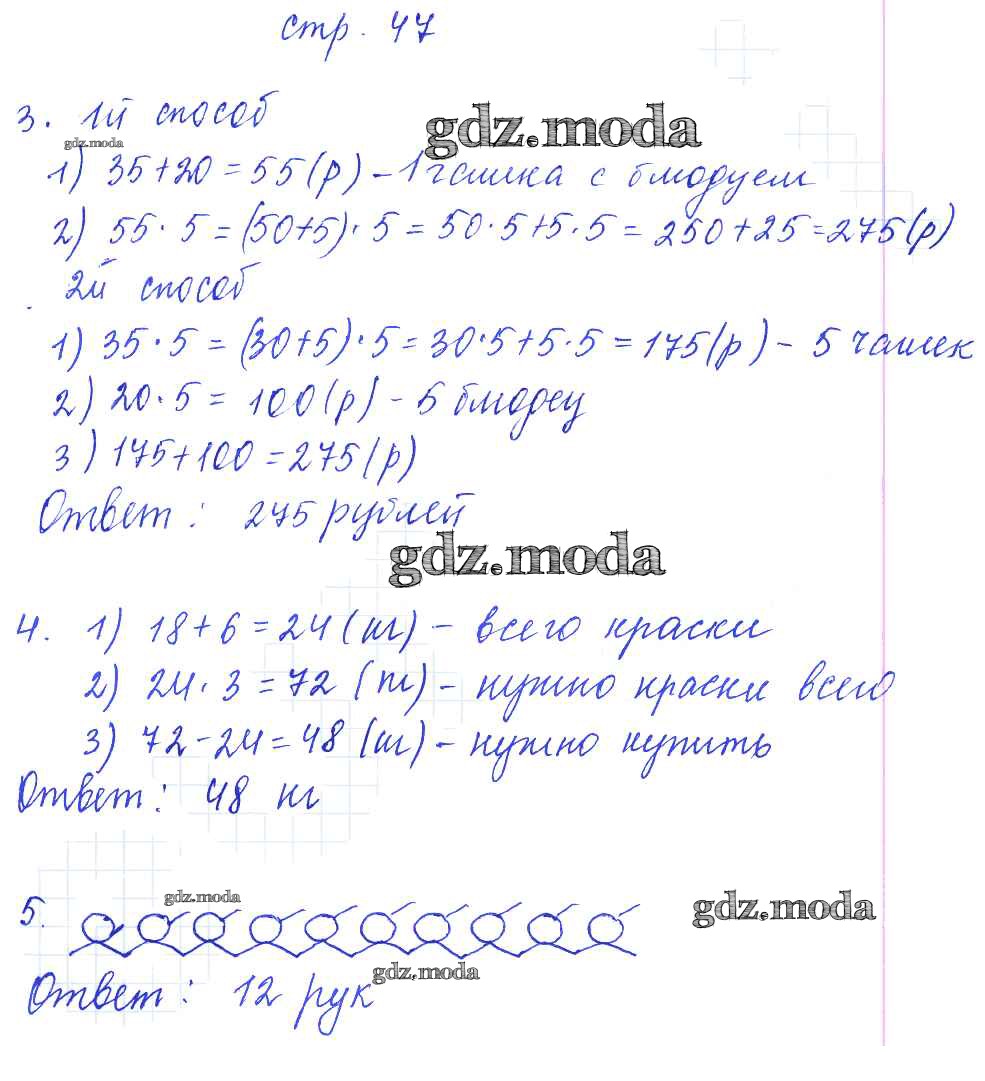 стр. 47
gdz.moda
3. 1й способ
gdz.moda
1) 35+20=55(р) – 1 чашка с блюдцем
2) 55·5=(50+5)·5=50·5+5·5=250+25=275(р)
2й способ
1) 35·5=(30+5)·5=30·5+5·5=175(р) – 5 чашек
2) 20·5=100(р) – 5 блюдец
3) 175+100=275(р)
Ответ: 275 рублей
gdz.moda
4. 1) 18+6=24(кг) – всего краски
2) 24·3=72(кг) – нужно краски всего
3) 72–24=48(кг) – нужно купить
Ответ: 48 кг
gdz.moda
5.
gdz.moda
gdz.moda
Ответ: 12 рук